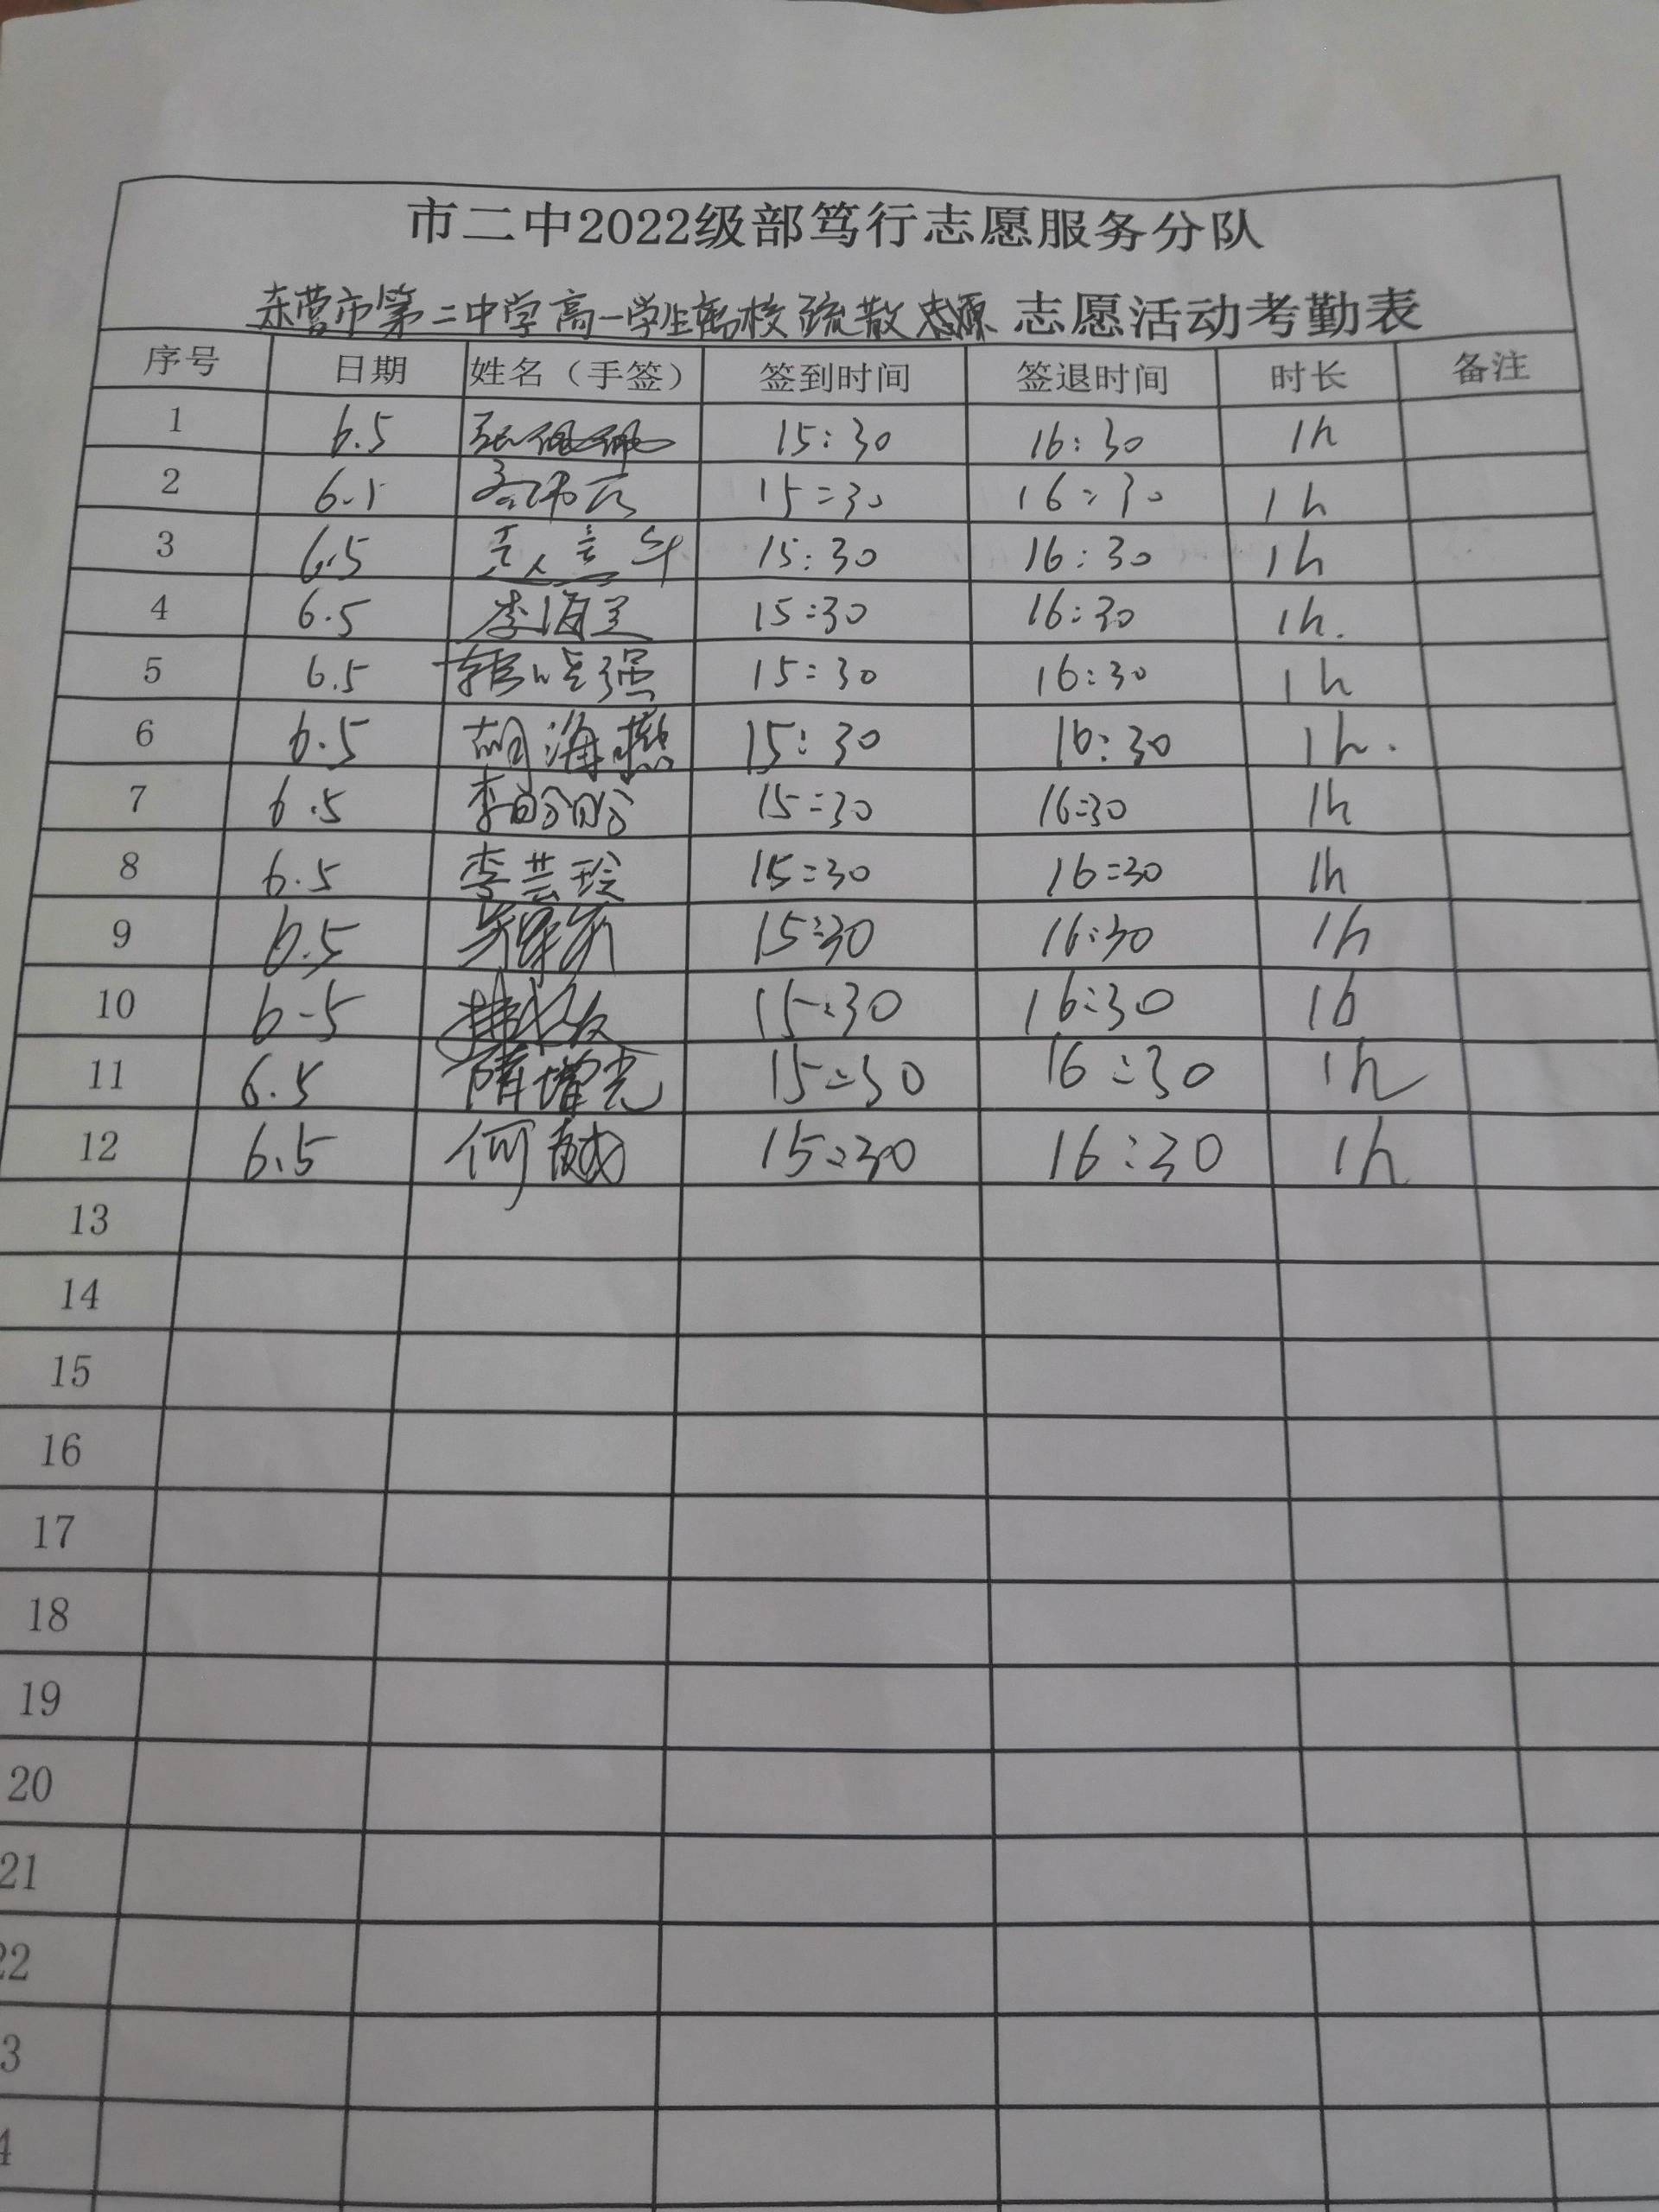 市二中2022级部笃行志愿服务分队
东营市第二中学高一学生离校疏散志愿 志愿活动考勤表
序号 日期 姓名（手签） 签到时间 签退时间 时长 备注
1 6.5 15:30 16:30 1h
2 6.5 15:30 16:30 1h
3 6.5 15:30 16:30 1h
4 6.5 李 15:30 16:30 1h.
5 6.5 韩 强 15:30 16:30 1h
6 6.5 胡海燃 15:30 16:30 1h.
7 6.5 李盼盼 15:30 16:30 1h
8 6.5 李芸玲 15:30 16:30 1h
9 6.5 15:30 16:30 1h
10 6.5 15:30 16:30 1h
11 6.5 隋增光 15:30 16:30 1h
12 6.5 何 15:30 16:30 1h
13
14
15
16
17
18
19
20
21
22
3
4